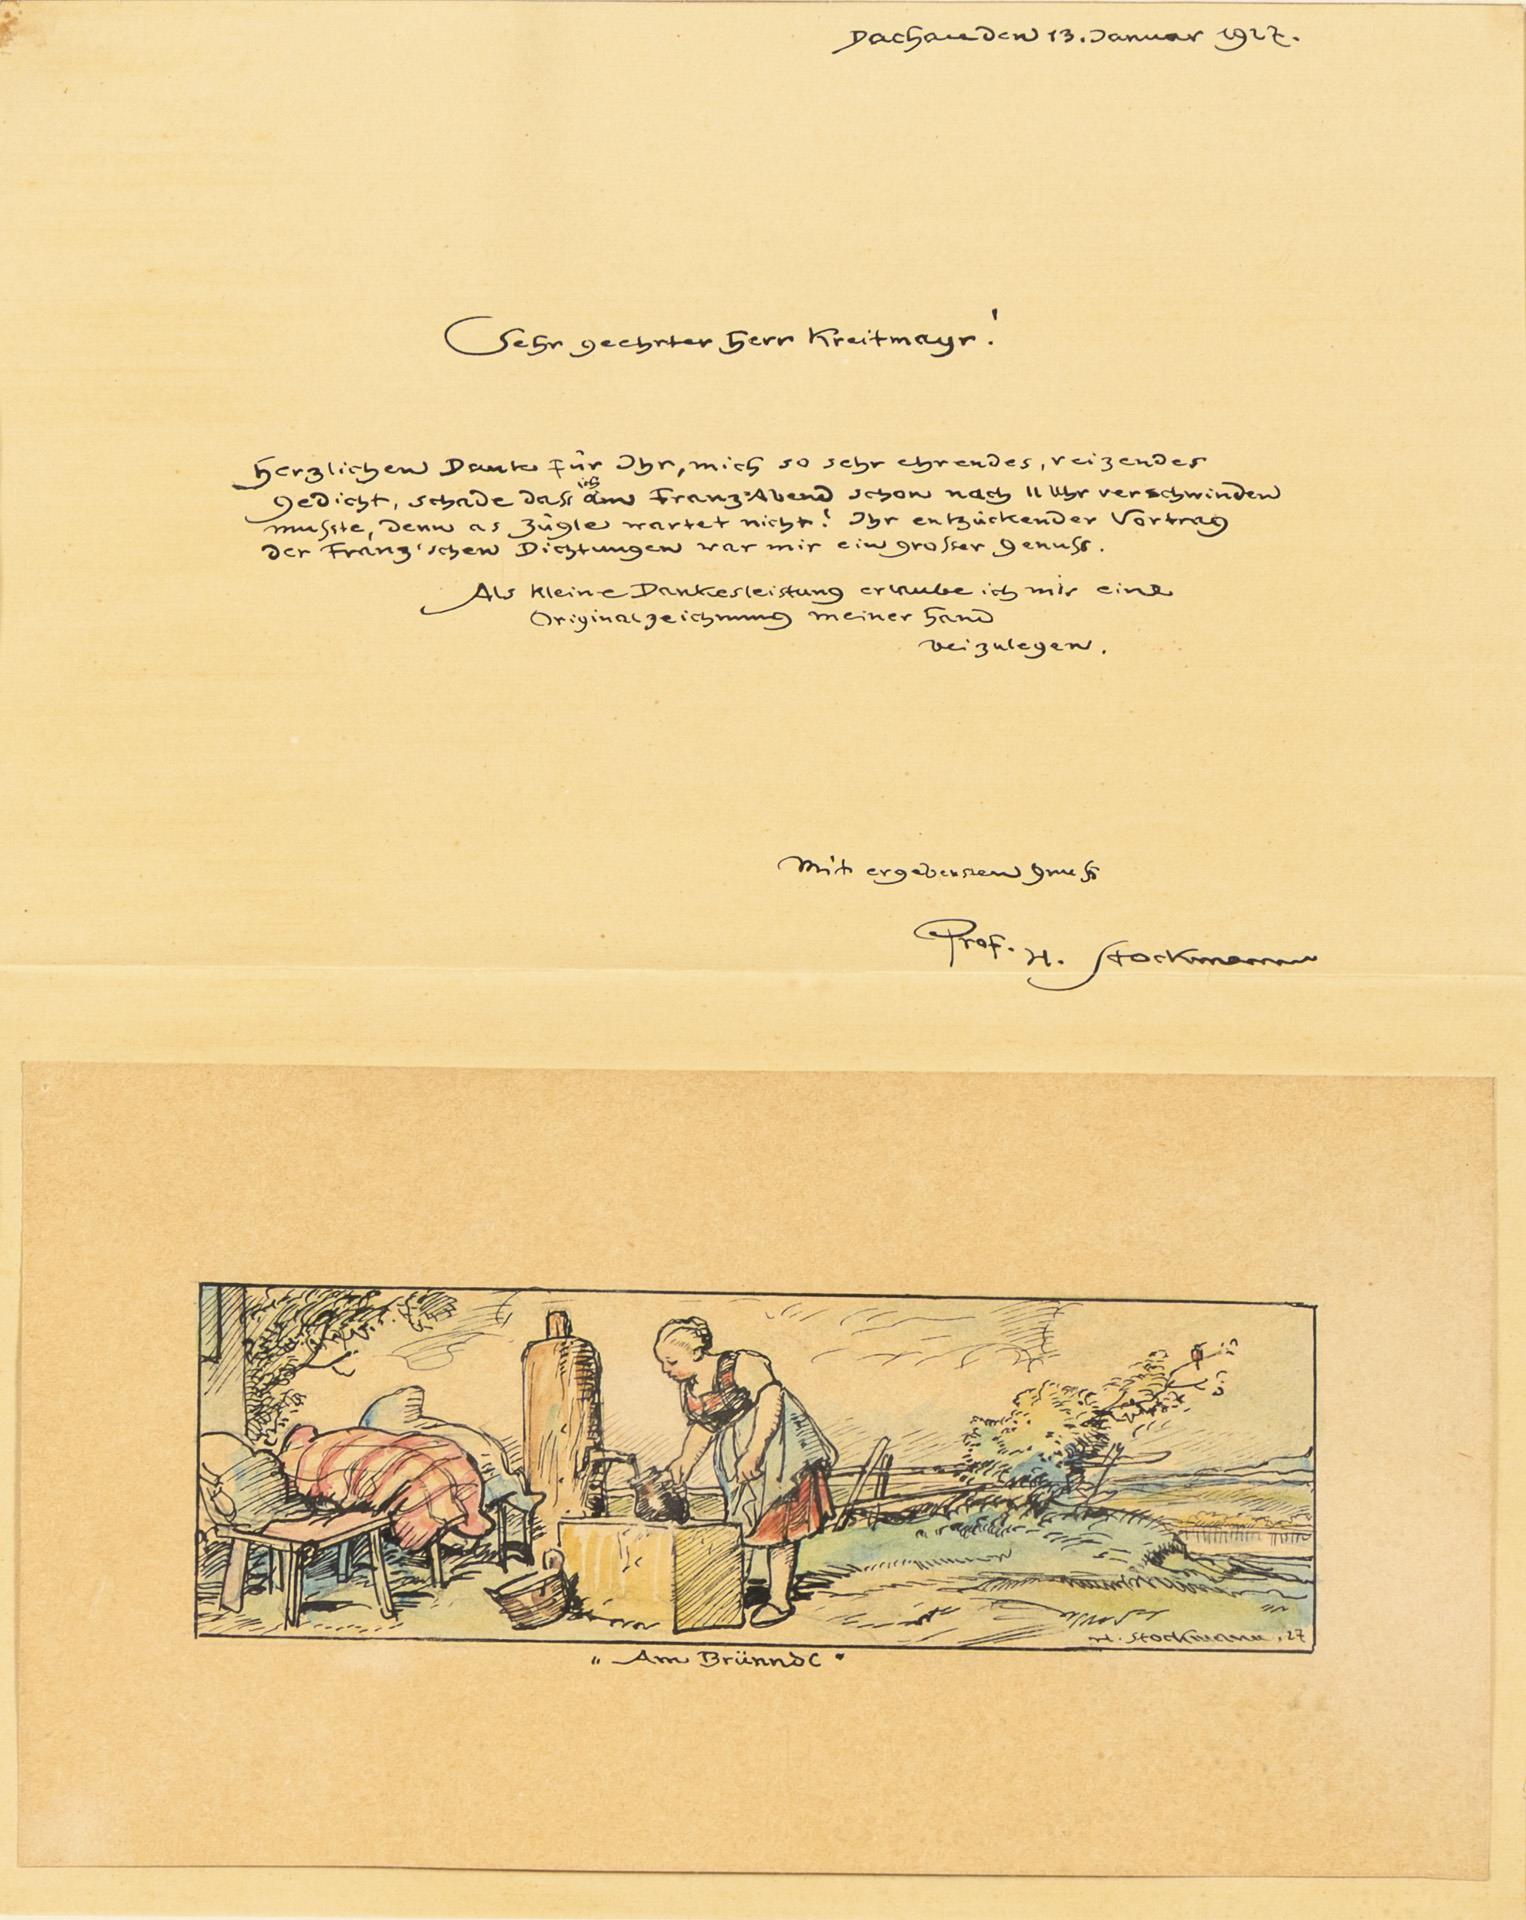 Dachau den 13. Januar 1927.
Sehr geehrter Herr Kreitmayr!
Herzlichen Dank für Ihr, mich so sehr ehrendes, reizendes
Gedicht, schade dass ich am Franz-Abend schon nach 11 Uhr verschwinden
musste, denn as Zügle wartet nicht! Ihr entzückender Vortrag
der Franz'schen Dichtungen war mir ein grosser Genuss.
Als kleine Dankesleistung erlaube ich mir eine
Originalzeichnung meiner Hand
beizulegen.
Mit ergebensten Gruß
Prof. H. Stockmann
H. Stockmann, 27
„Am Bründl"